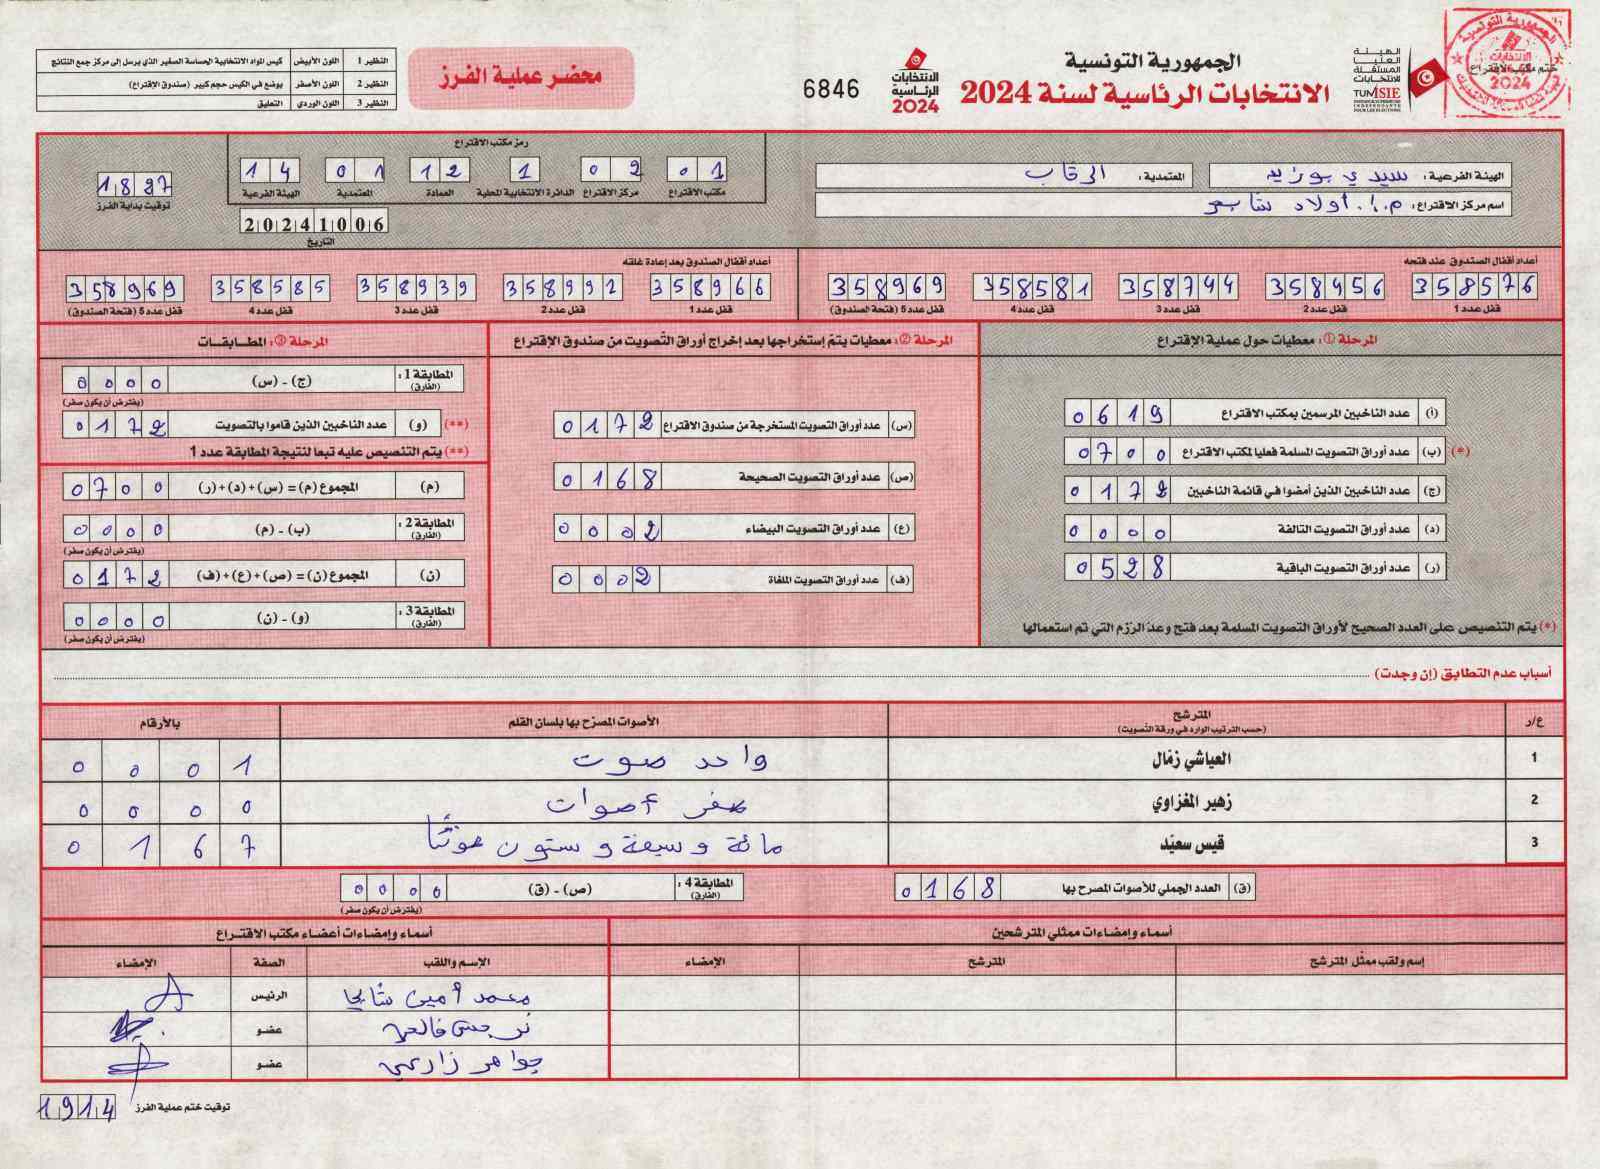 الجمهورية التونسية
الانتخابات الرئاسية لسنة 2024
الهيئة العليا المستقلة للانتخابات
TUNISIE
الانتخابات الرئاسية 2024
6846
محضر عملية الفرز
النظير 1 اللون الأبيض كيس المواد الانتخابية الحساسة الصغير الذي يرسل إلى مركز جمع النتائج
النظير 2 اللون الأصفر يوضع في الكيس حجم كبير (صندوق الإقتراع)
النظير 3 اللون الوردي التعليق
ختم مكتب الاقتراع
الجمهورية التونسية
الانتخابات
2024
الهيئة الفرعية : سيدي بوزيد
المعتمدية : الرقاب
اسم مركز الاقتراع : م.إ. أولاد شابع
رمز مكتب الاقتراع
01 02 1 12 01 14
مكتب الاقتراع مركز الاقتراع الدائرة الانتخابية المحلية العمادة المعتمدية الهيئة الفرعية
1827
توقيت بداية الفرز
20241006
التاريخ
أعداد أقفال الصندوق عند فتحه
358576 358456 358744 358581 358969
قفل عدد 1 قفل عدد 2 قفل عدد 3 قفل عدد 4 قفل عدد 5 (فتحة الصندوق)
أعداد أقفال الصندوق بعد إعادة غلقه
358966 358992 358939 358585 358969
قفل عدد 1 قفل عدد 2 قفل عدد 3 قفل عدد 4 قفل عدد 5 (فتحة الصندوق)
المرحلة ①: معطيات حول عملية الإقتراع
(أ) عدد الناخبين المرسمين بمكتب الاقتراع 0619
(*) (ب) عدد أوراق التصويت المسلمة فعليا لمكتب الاقتراع 0700
(ج) عدد الناخبين الذين أمضوا في قائمة الناخبين 0172
(د) عدد أوراق التصويت التالفة 0000
(ر) عدد أوراق التصويت الباقية 0528
(*) يتم التنصيص على العدد الصحيح لأوراق التصويت المسلمة بعد فتح وعد الرزم التي تم استعمالها
المرحلة ②: معطيات يتم إستخراجها بعد إخراج أوراق التصويت من صندوق الإقتراع
(س) عدد أوراق التصويت المستخرجة من صندوق الاقتراع 0172
(ص) عدد أوراق التصويت الصحيحة 0168
(ع) عدد أوراق التصويت البيضاء 0002
(ف) عدد أوراق التصويت الملغاة 0002
المرحلة ③: المطابقات
المطابقة 1 : (الفارق) (ج) - (س) 0000
(يفترض أن يكون صفر)
(**) (و) عدد الناخبين الذين قاموا بالتصويت 0172
(**) يتم التنصيص عليه تبعا لنتيجة المطابقة عدد 1
(م) المجموع (م) = (س)+(د)+(ر) 0700
المطابقة 2 : (الفارق) (ب) - (م) 0000
(يفترض أن يكون صفر)
(ن) المجموع (ن) = (ص)+(ع)+(ف) 0172
المطابقة 3 : (الفارق) (و) - (ن) 0000
(يفترض أن يكون صفر)
أسباب عدم التطابق (إن وجدت)
ع/ر المترشح (حسب الترتيب الوارد في ورقة التصويت) الأصوات المصرّح بها بلسان القلم بالأرقام
1 العياشي زمّال واحد صوت 0001
2 زهير المغزاوي صفر أصوات 0000
3 قيس سعيّد مائة وسبعة وستون صوتًا 0167
(ق) العدد الجملي للأصوات المصرح بها 0168
المطابقة 4 : (الفارق) (ص) - (ق) 0000
(يفترض أن يكون صفر)
أسماء وإمضاءات ممثلي المترشحين
إسم ولقب ممثّل المترشح المترشح الإمضاء
أسماء وإمضاءات أعضاء مكتب الاقتراع
الإسم واللقب الصفة الإمضاء
محمد أمين شابحي الرئيس
نرجس عضو
جواهر زارعي عضو
توقيت ختم عملية الفرز 1914